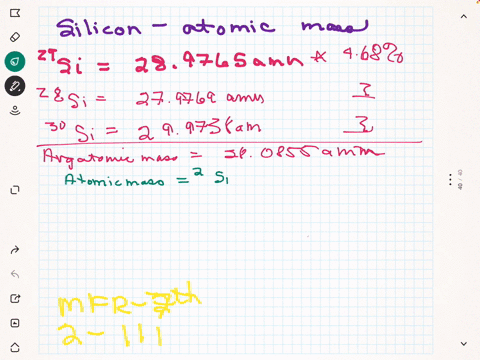 Silicon - atomic mass
29Si = 28.9765amn * 4.68%
28Si = 27.9769 amu
30 Si = 29.9738 am
Avg atomic mass = 28.0855 amm
Atomic mass = 2 Si
MFR - 7th
2 - 111